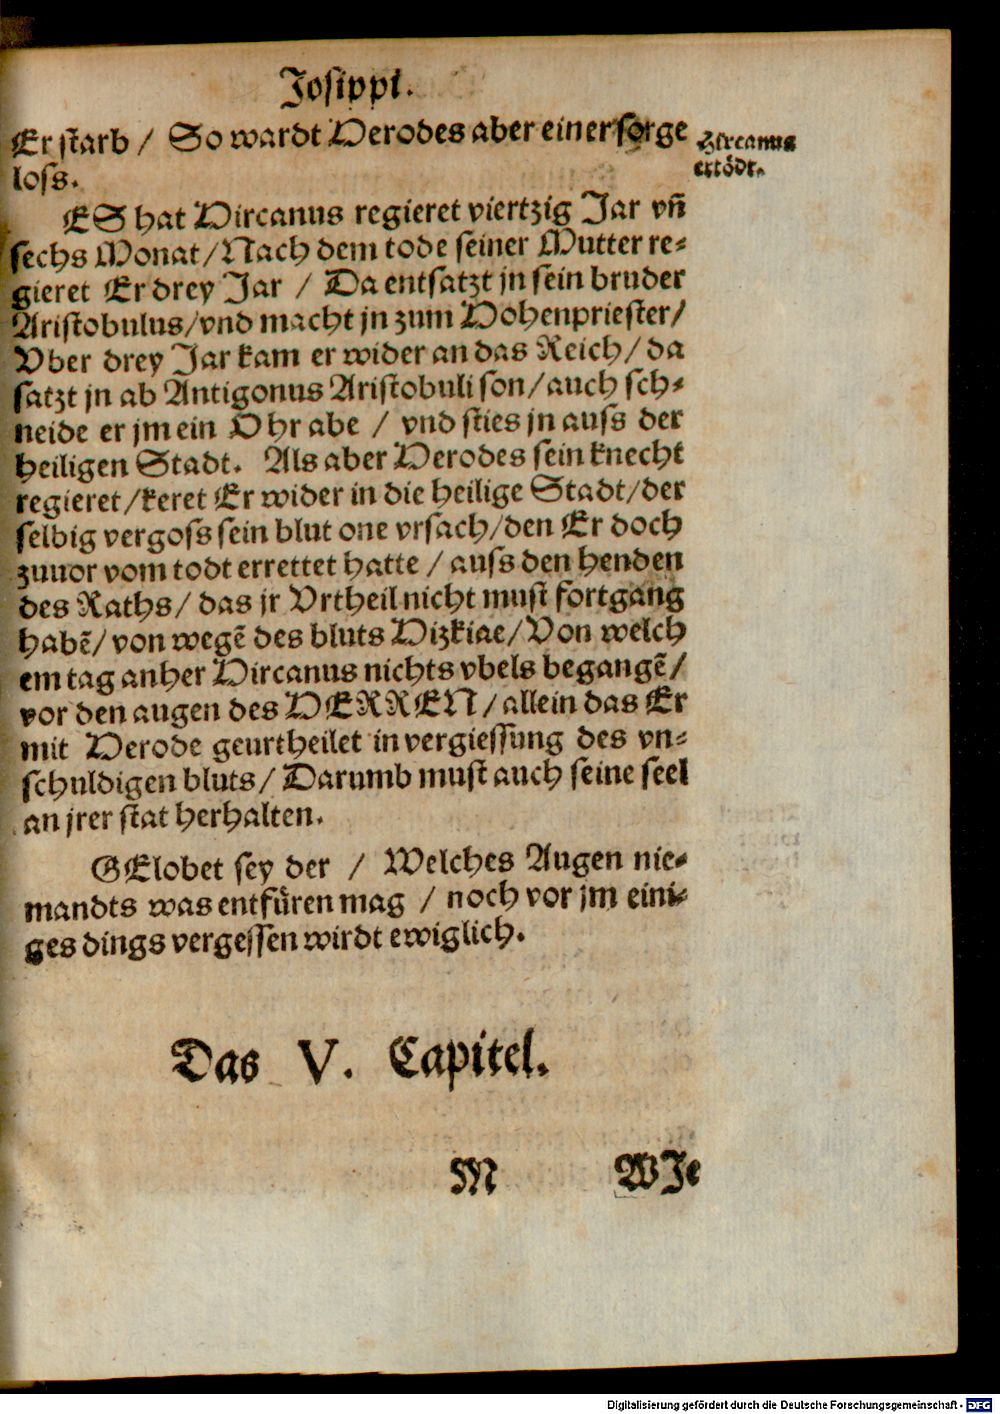 Josippi.
Er starb / So wardt Herodes aber einer sorge
loss.
Hircanus
ertödt.
ES hat Hircanus regieret viertzig Jar vñ
sechs Monat/Nach dem tode seiner Mutter re-
gieret Er drey Jar / Da entsatzt jn sein bruder
Aristobulus/vnd macht jn zum Hohenpriester/
Vber drey Jar kam er wider an das Reich/da
satzt jn ab Antigonus Aristobuli son/auch sch-
neide er jm ein Ohr abe / vnd sties jn auss der
heiligen Stadt. Als aber Herodes sein knecht
regieret/keret Er wider in die heilige Stadt/der
selbig vergoss sein blut one vrsach/den Er doch
zuuor vom todt errettet hatte / auss den henden
des Raths/ das jr Vrtheil nicht must fortgang
habẽ/ von wegẽ des bluts Hizkiae/Von welch
em tag anher Hircanus nichts vbels begangẽ/
vor den augen des HERREN/allein das Er
mit Herode geurtheilet in vergiessung des vn-
schuldigen bluts/ Darumb must auch seine seel
an jrer stat herhalten.
GElobet sey der / Welches Augen nie-
mandts was entfüren mag / noch vor jm eini-
ges dings vergessen wirdt ewiglich.
Das V. Capitel.
M
WJe
Digitalisierung gefördert durch die Deutsche Forschungsgemeinschaft - DFG